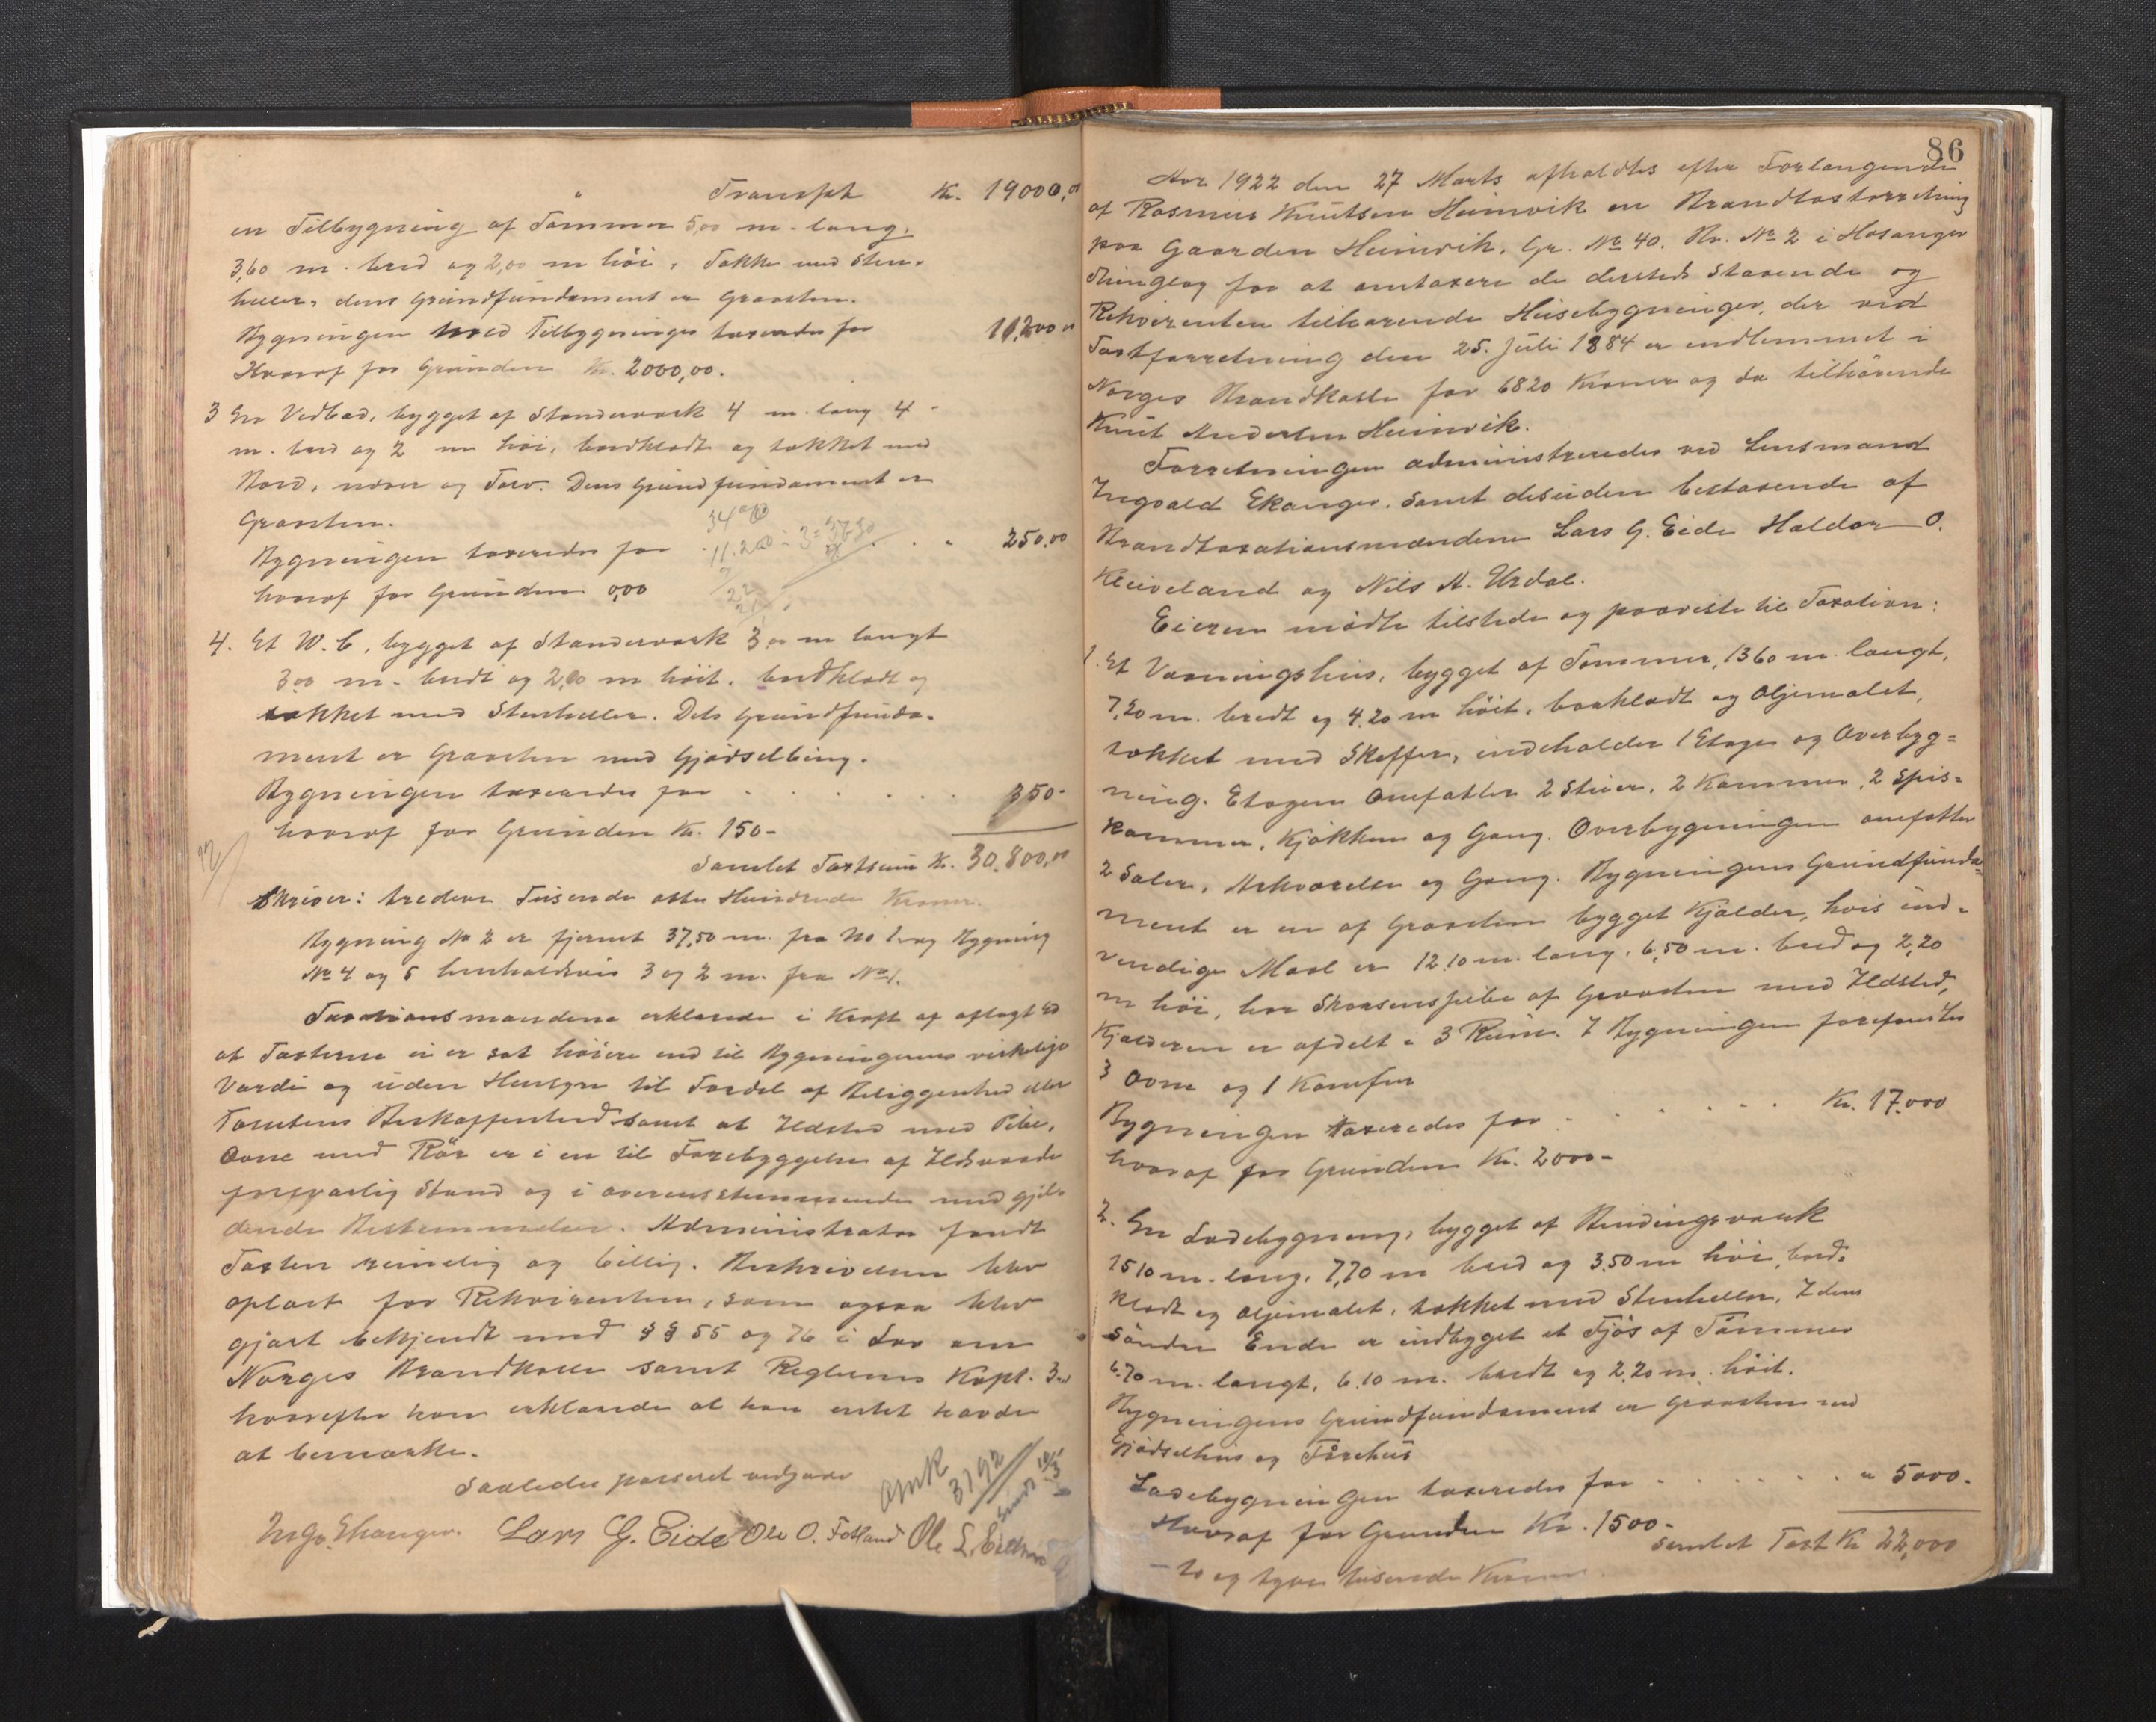 Transpt Kr. 19000,00
en Tilbygning af Tømmer 5,00 m. lang,
3,60 m. bred og 2,00 m høi, Tækket med Sten-
heller, dens Grundfundament er Graasten.
Bygningen med Tilbygninger taxeredes for 11,200 00
Hvoraf for Grunden Kr. 2000,00.
3 En Vedbod, bygget af Standerværk 4 m. lang 4
m. bred og 2 m høi, bordklædt og tækket med
Bord, næver og Torv. Dens Grundfundament er
Graasten.
Bygningen taxeredes for 250,00
hvoraf for Grunden 0,00
4. Et W.C, bygget af Standerværk 3,00 m langt
3,00 m. bredt og 2,00 m høit, bordklædt og
tækket med Stenheller. Dets Grundfunda-
ment er Graasten med Gjødselbing.
Bygningen taxeredes for 350-
hvoraf for Grunden Kr. 150-
Samlet Taxtsum Kr. 30.800,00
Skriver: tredive Tusende otte Hundrede Kroner.
Bygning No 2 er fjernet 37,50 m. fra No 1 og Bygning
No 4 og 5 henholdsvis 3 og 2 m. fra No 1.
Taxationsmændene erklærede i Kraft af aflagt Ed
at Taxterne ei er sat høiere end til Bygningernes virkelige
Værdi og uden Hensyn til Fordel af Beliggenhed eller
Tomtens Beskaffenhed samt at Ildsted med Pibe,
Ovne med Rør er i en til Forebyggelse af Ildsvaade
forsvarlig Stand og i overensstemmende med gjæl-
dende Bestemmelser. Administrator fandt
Taxten rimelig og billig. Beskrivelsen blev
oplæst for Rekvirenten, som ogsaa blev
gjort bekjendt med §§ 55 og 76 i Lov om
Norges Brandkasse samt Reglems Kapt. 3
hvorefter han erklærede at han intet havde
at bemærke.
Saaledes passeret vedgaaes
Ingv. Ekanger. Lars G. Eide Ole O. Fotland Ole L.
86
Aar 1922 den 27 Marts afholdtes efter Forlangende
af Rasmus Knutsen Heimvik en Brandtaxtforretning
paa Gaarden Heimvik, Gr. No 40. Br. No 2 i Hosanger
Thinglag for at omtaxere de dersteds staaende og
Rekvirenten tilhørende Husebygninger, der ved
Taxtforretning den 25. Juli 1884 er indlemmet i
Norges Brandkasse for 6820 Kroner og da tilhørende
Knut Andersen Heimvik.
Forretningen administreredes ved Lensmand
Ingvald Ekanger, samt desuden bestaaende af
Brandtaxationsmændene Lars G. Eide Haldor O.
Kleiveland og Nils A. Urdal.
Eieren mødte tilstede og paaviste til Taxation:
1. Et Vaaningshus, bygget af Tømmer, 13 60 m. langt,
7,20 m. bredt og 4.20 m høit, bordklædt og Oljemalet,
tækket med Skeffer, indeholder 1 Etage og Overbyg=
ning. Etagen Omfatter 2 Stuer, 2 Kammer, 2 Spis=
kammer, Kjøkken og Gang. Overbygningen omfatter
2 Saler, Arkværelse og Gang. Bygningens Grundfunda=
ment er en af Graasten bygget Kjælder, hvis ind=
vendige Maal er 12,10 m. lang, 6,50 m. bred og 2,20
m høi, har Skorsenspibe af Graasten med Ildsted,
Kjælderen er afdelt i 3 Rum. I Bygningen forefandtes
3 Ovne og 1 Komfur
Bygningen taxeredes for Kr. 17.000
hvoraf for Grunden Kr. 2000-
2. En Ladebygning, bygget af Bindingsværk
15 10 m. lang, 7,70 m bred og 3,50 m høi, bord-
klædt og oljemalet, tækket med Stenheller. I dens
søndre Ende er indbygget et Fjøs af Tømmer
6.70 m. langt, 6.10 m. bredt og 2,20 m. høit.
Bygningens Grundfundament er Graasten med
Gjødselhus og Fårehus
Ladebygningen taxeredes for " 5000.
Hvoraf for Grunden Kr. 1500-
Samlet Taxt Kr 22,000
- to og tyve tusende Kroner.